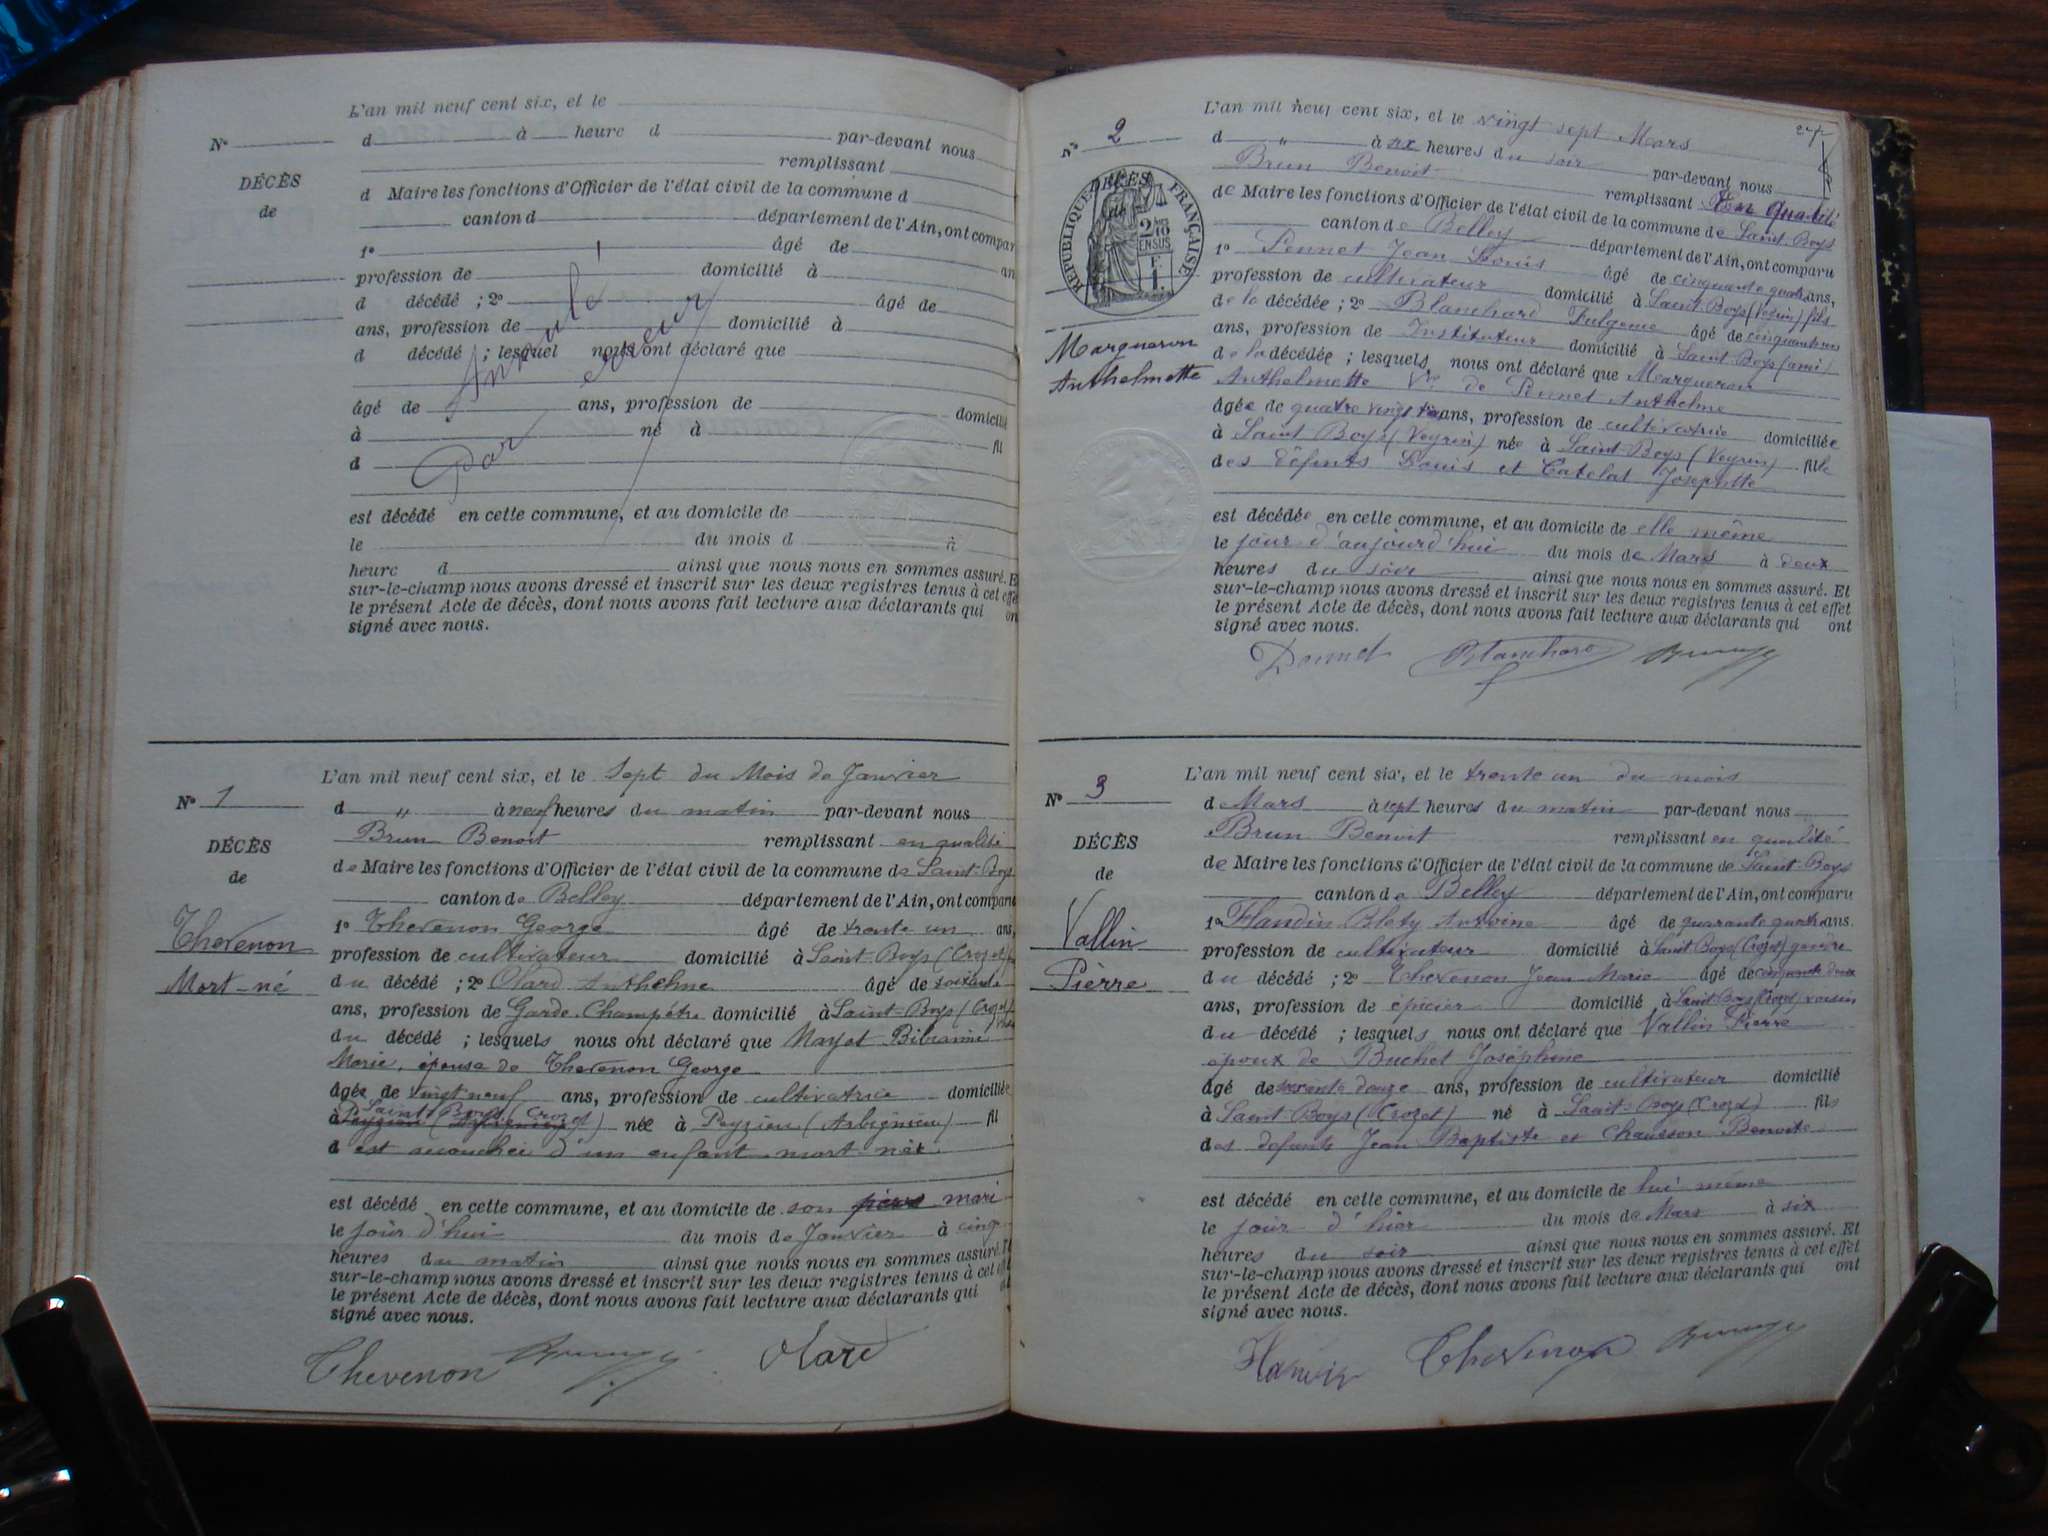 L'an mil neuf cent six, et le
d à heure d par-devant nous
N°
remplissant
DÉCÈS
de
d Maire les fonctions d'Officier de l'état civil de la commune d
canton d département de l'Ain, ont compar
1° âgé de an
profession de domicilié à
d décédé ; 2° âgé de
ans, profession de domicilié à
d décédé ; lesquel nous ont déclaré que
Annulé
Par erreur
âgé de ans, profession de domicilié
à né à fil
d
est décédé en cette commune, et au domicile de
le du mois d à
heure d ainsi que nous nous en sommes assuré. E
sur-le-champ nous avons dressé et inscrit sur les deux registres tenus à cet effet
le présent Acte de décès, dont nous avons fait lecture aux déclarants qui on
signé avec nous.
L'an mil neuf cent six, et le Sept du Mois de Janvier
N° 1
d " à neuf heures du matin par-devant nous
Brun Benoit remplissant en qualité
DÉCÈS
de
Thevenon
Mort-né
de Maire les fonctions d'Officier de l'état civil de la commune de Saint-Boys
canton de Belley département de l'Ain, ont comparu
1° Thevenon George âgé de trente un ans,
profession de cultivateur domicilié à Saint-Boys (Crozet)
du décédé ; 2° Olard Anthelme âgé de soixante
ans, profession de Garde-Champêtre domicilié à Saint-Boys (Crozet)
du décédé ; lesquels nous ont déclaré que Mayot Bibianne
Marie, épouse de Thevenon George
âgée de vingt neuf ans, profession de cultivatrice domiciliée
à Saint Boys (Crozet) née à Peyzieu (Arbignieu) fil
d est accouchée d'un enfant mort né
est décédé en cette commune, et au domicile de son mari
le jour d'hui du mois de Janvier à cinq
heures du matin ainsi que nous nous en sommes assuré. Et
sur-le-champ nous avons dressé et inscrit sur les deux registres tenus à cet eff
le présent Acte de décès, dont nous avons fait lecture aux déclarants qui
signé avec nous.
Thevenon Olard
L'an mil neuf cent six, et le vingt sept Mars
N° 2
d " à six heures du soir par-devant nous
Brun Benoit remplissant en qualité
DÉCÈS
de
RÉPUBLIQUE FRANÇAISE
Marqueron
Anthelmette
de Maire les fonctions d'Officier de l'état civil de la commune de Saint-Boys
canton de Belley département de l'Ain, ont comparu
1° Pennet Jean Louis âgé de cinquante quatre ans,
profession de cultivateur domicilié à Saint-Boys (Veyrin) fils
de la décédée ; 2° Blanchard Fulgence âgé de cinquante
ans, profession de Instituteur domicilié à Saint Boys (ami)
de la décédée ; lesquels nous ont déclaré que Marqueron
Anthelmette Vve de Pennet Anthelme
âgée de quatre vingt ans, profession de cultivatrice domiciliée
à Saint Boys (Veyrin) née à Saint-Boys (Veyrin) fille
des défunts Louis et Catelat Josephte
est décédée en cette commune, et au domicile de elle même
le jour d'aujourd'hui du mois de Mars à deux
heures du soir ainsi que nous nous en sommes assuré. Et
sur-le-champ nous avons dressé et inscrit sur les deux registres tenus à cet effet
le présent Acte de décès, dont nous avons fait lecture aux déclarants qui ont
signé avec nous.
Pennet Blanchard
L'an mil neuf cent six, et le trente un du mois
N° 3
de Mars à sept heures du matin par-devant nous
Brun Benoit remplissant en qualité
DÉCÈS
de
Vallin
Pierre
de Maire les fonctions d'Officier de l'état civil de la commune de Saint-Boys
canton de Belley département de l'Ain, ont comparu
1° Flandin Blety Antoine âgé de quarante quatre ans.
profession de cultivateur domicilié à Saint Boys (Crozet) gendre
du décédé ; 2° Thevenon Jean Marie âgé de cinquante deux
ans, profession de épicier domicilié à Saint Boys (Crozet) voisin
du décédé ; lesquels nous ont déclaré que Vallin Pierre
époux de Buchet Joséphine
âgé de soixante douze ans, profession de cultivateur domicilié
à Saint Boys (Crozet) né à Saint-Boys (Crozet) fils
des defunts Jean Baptiste et Chausson Benoite
est décédé en cette commune, et au domicile de lui même
le jour d'hier du mois de Mars à six
heures du soir ainsi que nous nous en sommes assuré. Et
sur-le-champ nous avons dressé et inscrit sur les deux registres tenus à cet effet
le présent Acte de décès, dont nous avons fait lecture aux déclarants qui ont
signé avec nous.
Flandin Thevenon